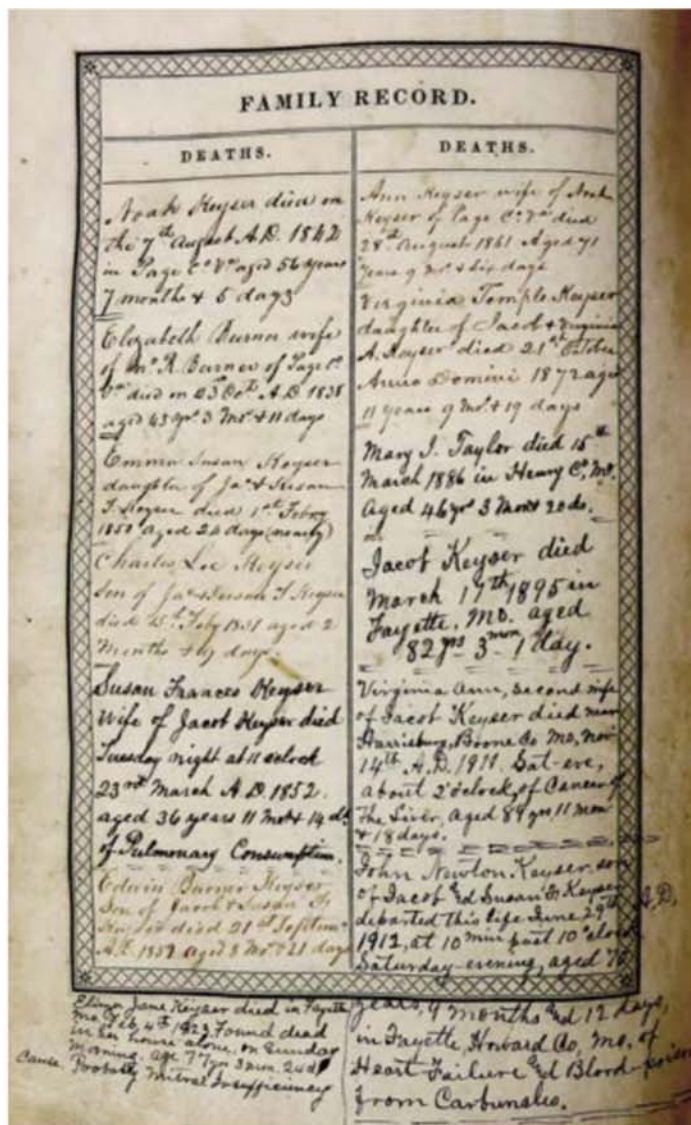 FAMILY RECORD.
DEATHS.
Noah Keyser died on
the 7th August A.D. 1842
in Page Co Va aged 56 years
7 months & 5 days
Elizabeth Burner wife
of R. Burner of Page Co
Va died on Octr A.D. 1838
aged 43 yrs 3 Mos & 11 days
Emma Susan Keyser
daughter of Jas & Susan
F. Keyser died 1st Febry
1850 aged 24 days (nearly)
Charles Lee Keyser
Son of Jas & Susan F Keyser
died Feby 1851 aged 2
Months & days.
Susan Frances Keyser
Wife of Jacob Keyser died
Tuesday night at 11 oclock
23rd March A D 1852.
aged 36 years 11 Mos & 14 ds
of Pulmonary Consumption.
Edwin Burner Keyser
Son of Jacob & Susan F
Keyser died 21st Septem
A.D. 1852 aged 8 Mos & 21 days
Elinor Jane Keyser died in Fayette
Mo Feb. 4th 1923 Found dead
in her house alone, on Sunday
morning. age 77 yrs 3 mon. 24 ds
Cause Probably Mitral Insufficiency
DEATHS.
Ann Keyser wife of Noah
Keyser of Page Co Va died
28th August 1861 Aged 71
Years 9 Mos & six days
Virginia Temple Keyser
daughter of Jacob & Virginia
A. Keyser died 21st October
Anno Domini 1872 aged
11 years 9 Mos & 19 days
Mary J. Taylor died 15th
March 1886 in Henry Co, Mo.
Aged 46 yrs 3 Mons 20 ds.
Jacob Keyser died
March 17th 1895 in
Fayette, Mo. aged
82 yrs 3 mon 1 day.
Virginia Ann, second wife
of Jacob Keyser died near
Harrisburg, Boone Co Mo, Nov
14th A.D. 1911. Sat-eve,
about 2 o'clock, of Cancer of
The Liver, Aged 89 yrs 11 mon
& 18 days.
John Newton Keyser, son
of Jacob and Susan F. Keyser
departed this life June 29th A.D,
1912, at 10 min past 10 o'clock
Saturday-evening, aged 75
years, 9 months and 12 days,
in Fayette, Howard Co, Mo, of
Heart Failure and Blood-poison
from Carbuncles.